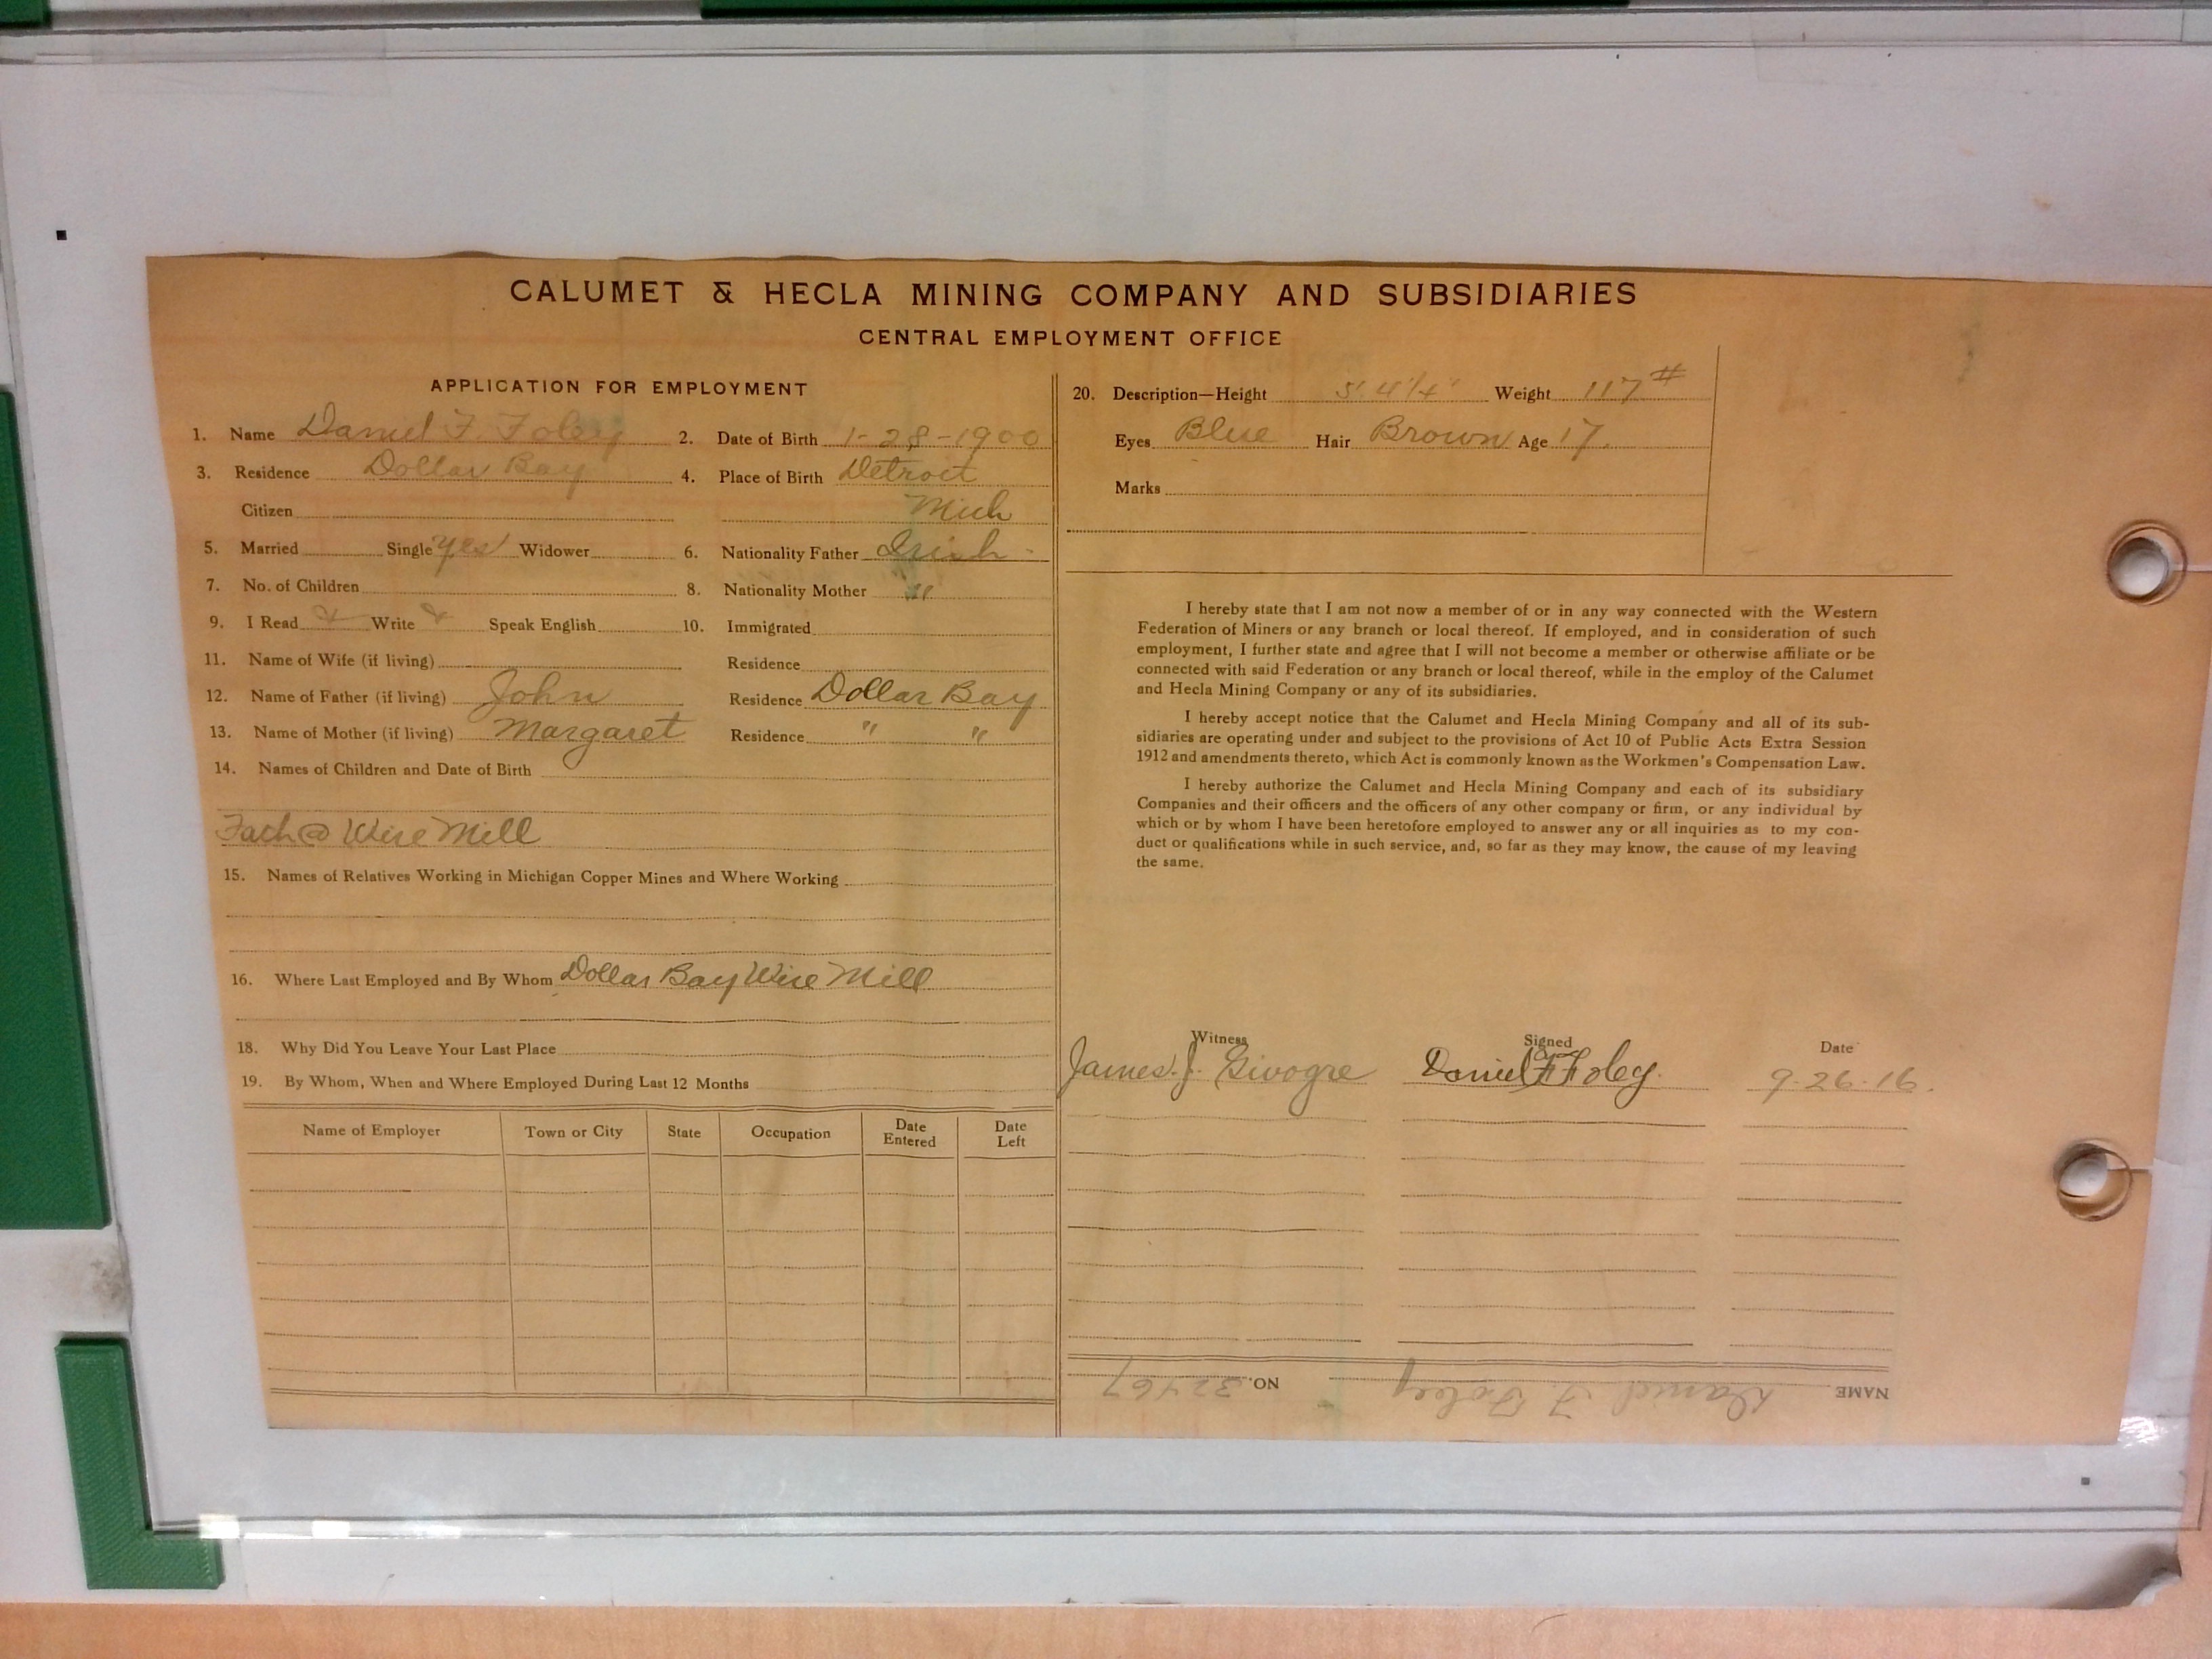 CALUMET & HECLA MINING COMPANY AND SUBSIDIARIES
CENTRAL EMPLOYMENT OFFICE
APPLICATION FOR EMPLOYMENT
1. Name Daniel F. Foley 2. Date of Birth 1-28-1900
3. Residence Dollar Bay 4. Place of Birth Detroit
Citizen Mich
5. Married Single yes Widower 6. Nationality Father Irish
7. No. of Children 8. Nationality Mother "
9. I Read Write Speak English 10. Immigrated
11. Name of Wife (if living) Residence
12. Name of Father (if living) John Residence Dollar Bay
13. Name of Mother (if living) Margaret Residence " "
14. Names of Children and Date of Birth
Fath @ Wire Mill
15. Names of Relatives Working in Michigan Copper Mines and Where Working
16. Where Last Employed and By Whom Dollar Bay Wire Mill
18. Why Did You Leave Your Last Place
19. By Whom, When and Where Employed During Last 12 Months
Name of Employer Town or City State Occupation Date Entered Date Left
20. Description—Height 5' 4 1/4" Weight 117 #
Eyes Blue Hair Brown Age 17.
Marks
I hereby state that I am not now a member of or in any way connected with the Western
Federation of Miners or any branch or local thereof. If employed, and in consideration of such
employment, I further state and agree that I will not become a member or otherwise affiliate or be
connected with said Federation or any branch or local thereof, while in the employ of the Calumet
and Hecla Mining Company or any of its subsidiaries.
I hereby accept notice that the Calumet and Hecla Mining Company and all of its sub-
sidiaries are operating under and subject to the provisions of Act 10 of Public Acts Extra Session
1912 and amendments thereto, which Act is commonly known as the Workmen's Compensation Law.
I hereby authorize the Calumet and Hecla Mining Company and each of its subsidiary
Companies and their officers and the officers of any other company or firm, or any individual by
which or by whom I have been heretofore employed to answer any or all inquiries as to my con-
duct or qualifications while in such service, and, so far as they may know, the cause of my leaving
the same.
Witness Signed Date
James J. Daniel F Foley 9-26-16.
NAME Daniel F. Foley NO. 32467